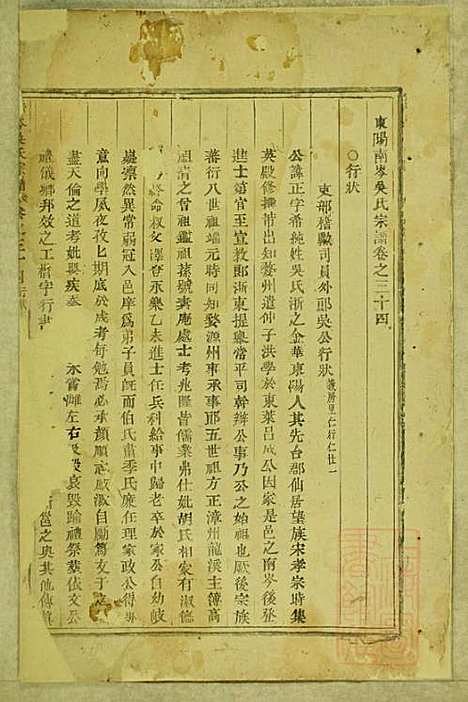 東陽南岑吳氏宗譜卷之三十四
○行狀
吏部稽勳司員外郎吳公行狀 義房里仁行仁廿一
公諱正字希純姓吳氏浙之金華東陽人其先台郡仙居望族宋孝宗時集
英殿修撰出知婺州道仲子洪學於東萊呂成公因家是邑之南岑後登
進士第官至宣教郎浙東提舉常平司幹辦公事乃公之始祖也厥後宗族
蕃衍八世祖端元時知婺源州事承事郎五世祖方正漳州龍溪主簿高
祖清之曾祖鑑祖孫號靜庵處士考兆隆皆儒業弗仕妣胡氏相家有淑德
終命叔文澤登永樂乙未進士任兵科給事中歸老卒於家公自幼岐
嶷凜然異常弱冠入邑庠爲弟子員旣而伯氏肅季氏廉任理家政公得專
意向學夙夜孜匕期底於成考每勉焉必承顏順志感激自勵篤友于之
盡天倫之道考妣興疾奉 永嘗離左右及歿哀毀踰禮祭葬依文公
禮儀鄉邦效之工楷字行書 之與其他傳寫